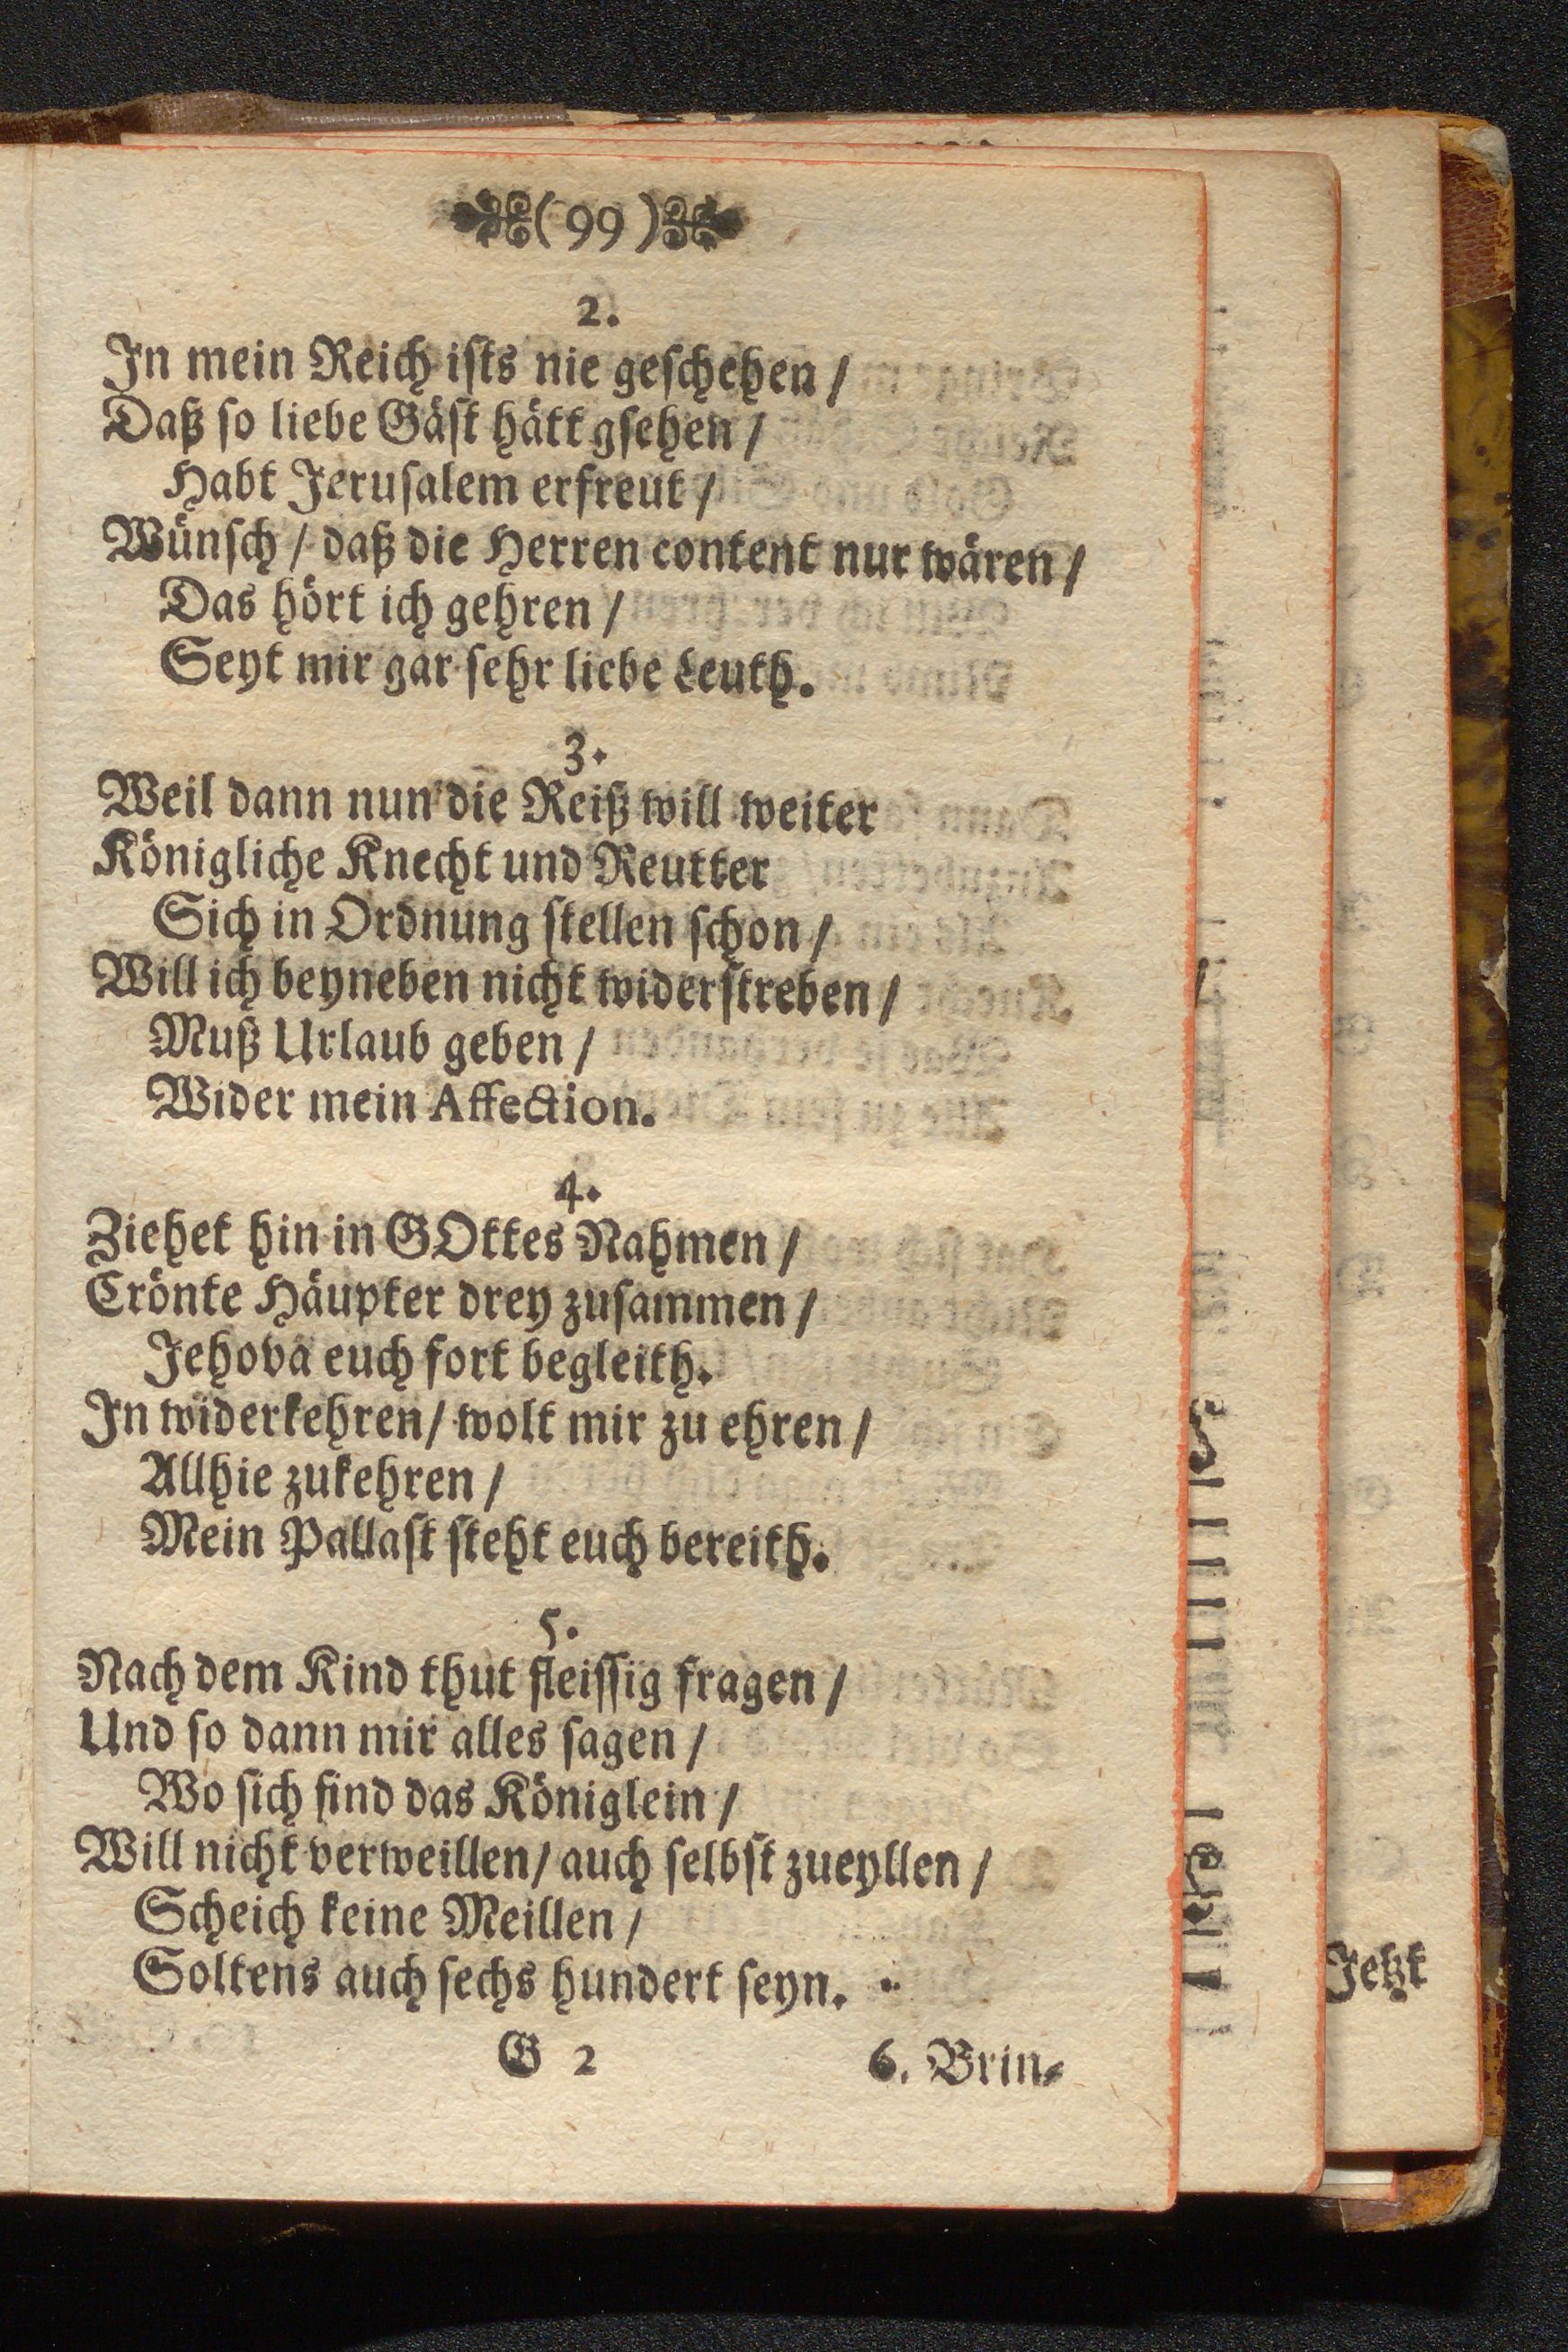 ( 99 )
2.
In mein Reich ists nie geschehen /
Daß so liebe Gäst hätt gsehen /
Habt Jerusalem erfreut /
Wünsch / daß die Herren content nur wären /
Das hört ich gehren /
Seyt mir gar sehr liebe Leuth.
3.
Weil dann nun die Reiß will weiter
Königliche Knecht und Reutter
Sich in Ordnung stellen schon /
Will ich beyneben nicht widerstreben /
Muß Urlaub geben /
Wider mein Affection.
4.
Ziehet hin in GOttes Nahmen /
Crönte Häupter drey zusammen /
Jehova euch fort begleith.
In widerkehren / wolt mir zu ehren /
Allhie zukehren /
Mein Pallast steht euch bereith.
5.
Nach dem Kind thut fleissig fragen /
Und so dann mir alles sagen /
Wo sich find das Königlein /
Will nicht verweillen / auch selbst zueyllen /
Scheich keine Meillen /
Soltens auch sechs hundert seyn.
G 2
6. Brin-
Jetzt